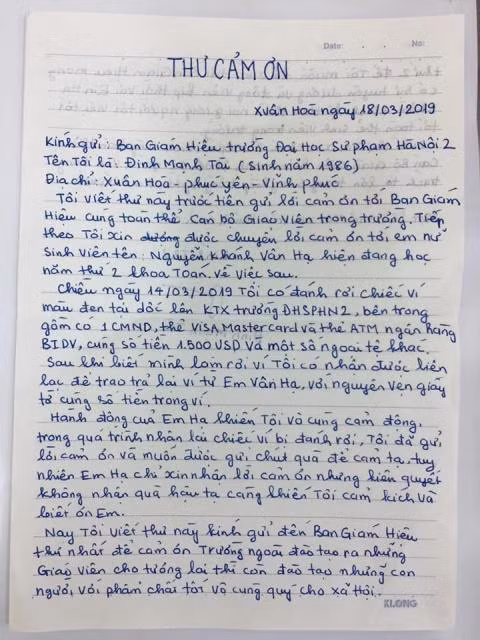 Date: . . No:
THƯ CẢM ƠN
Xuân Hoà ngày 18/03/2019
Kính gửi: Ban Giám Hiệu trường Đại Học Sư phạm Hà Nội 2
Tên Tôi là: Đinh Mạnh Tài (Sinh năm 1986)
Địa chỉ: Xuân Hoà - phúc yên - Vĩnh phúc
Tôi viết thư này trước tiên gửi lời cảm ơn tới Ban Giám
Hiệu cùng toàn thể Cán bộ Giáo Viên trong trường. Tiếp
theo Tôi xin được chuyển lời cảm ơn tới em nữ
Sinh viên tên: Nguyễn Khánh Vân Hạ hiện đang học
năm thứ 2 khoa Toán. Về việc sau.
Chiều ngày 14/03/2019 Tôi có đánh rơi chiếc ví
màu đen tại dốc lên KTX trường ĐHSPHN2, bên trong
gồm có 1 CMND, thẻ VISA, Mastercard và thẻ ATM ngân hàng
BIDV, cùng số tiền 1.500 USD và một số ngoại tệ khác.
Sau khi biết mình làm rơi ví Tôi có nhận được liên
lạc để trao trả lại ví từ Em Vân Hạ, với nguyên vẹn giấy
tờ cùng số tiền trong ví.
Hành động của Em Hạ khiến Tôi vô cùng cảm động,
trong quá trình nhận lại chiếc ví bị đánh rơi, Tôi đã gửi
lời cảm ơn và muốn được gửi chút quà để cảm tạ, tuy
nhiên Em Hạ chỉ xin nhận lời cảm ơn nhưng kiên quyết
không nhận quà hậu tạ càng khiến Tôi cảm kích và
biết ơn Em.
Nay Tôi viết thư này kính gửi đến Ban Giám Hiệu
thứ nhất để cảm ơn Trường ngoài đào tạo ra những
Giáo viên cho tương lai thì còn đào tạo những con
người, với phẩm chất tốt vô cùng quý cho xã hội.
KLONG